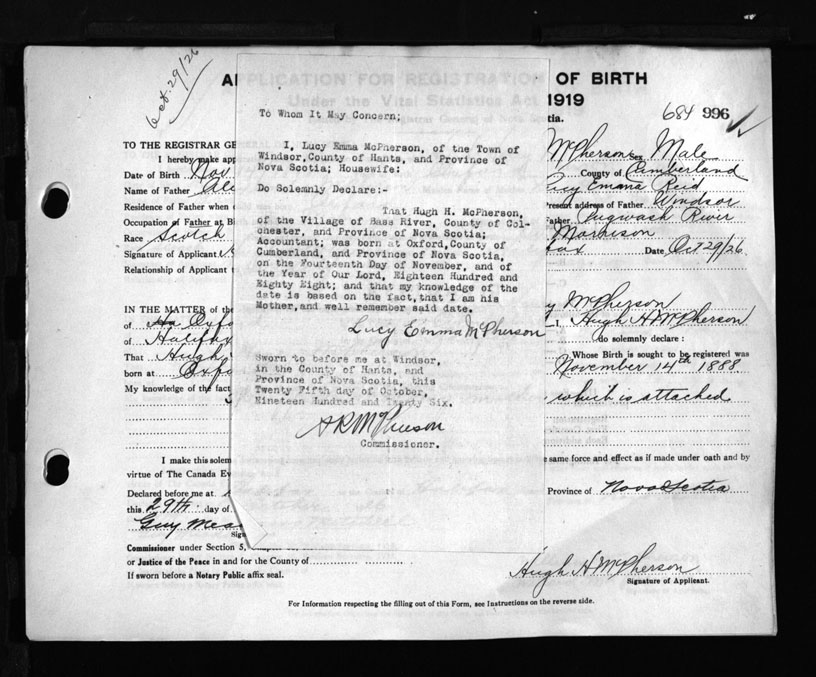 Oct. 29/26
APPLICATION FOR REGISTRATION OF BIRTH
Under the Vital Statistics Act 1919
684 996
To Whom It May Concern;
I, Lucy Emma McPherson, of the Town of
Windsor, County of Hants, and Province of
Nova Scotia; Housewife:
Do Solemnly Declare:-
That Hugh H. McPherson,
of the Village of Bass River, County of Col-
chester, and Province of Nova Scotia;
Accountant; was born at Oxford, County of
Cumberland, and Province of Nova Scotia,
on the Fourteenth Day of November, and of
the Year of Our Lord, Eighteen Hundred and
Eighty Eight; and that my knowledge of the
date is based on the fact, that I am his
Mother, and well remember said date.
Lucy Emma McPherson
Sworn to before me at Windsor,
in the County of Hants, and
Province of Nova Scotia, this
Twenty Fifth day of October,
Nineteen Hundred and Twenty Six.
Commissioner.
TO THE REGISTRAR GE
I hereby make app
McPherson Sex Male
Date of Birth Nov
County of Cumberland
Name of Father Ale
Lucy Emma Reid
Residence of Father when
Present address of Father Windsor
Occupation of Father at Bi
Father Pugwash River
Race Scotch
Morrison
Signature of Applicant
fax Date Oct 29/26
Relationship of Applicant
IN THE MATTER of the
y McPherson
of Ha Oxfo
I, Hugh H McPherson
of Halifax
do solemnly declare :
That Hugh
Whose Birth is sought to be registered was
born at Oxfo
November 14th 1888
My knowledge of the fact
which is attached
I make this solem
e same force and effect as if made under oath and by
virtue of The Canada Ev
Declared before me at
Province of Nova Scotia
this 29th day of
Guy Mea
Sign
Commissioner under Section 5,
or Justice of the Peace in and for the County of
Hugh H McPherson
Signature of Applicant.
If sworn before a Notary Public affix seal.
For Information respecting the filling out of this Form, see Instructions on the reverse side.